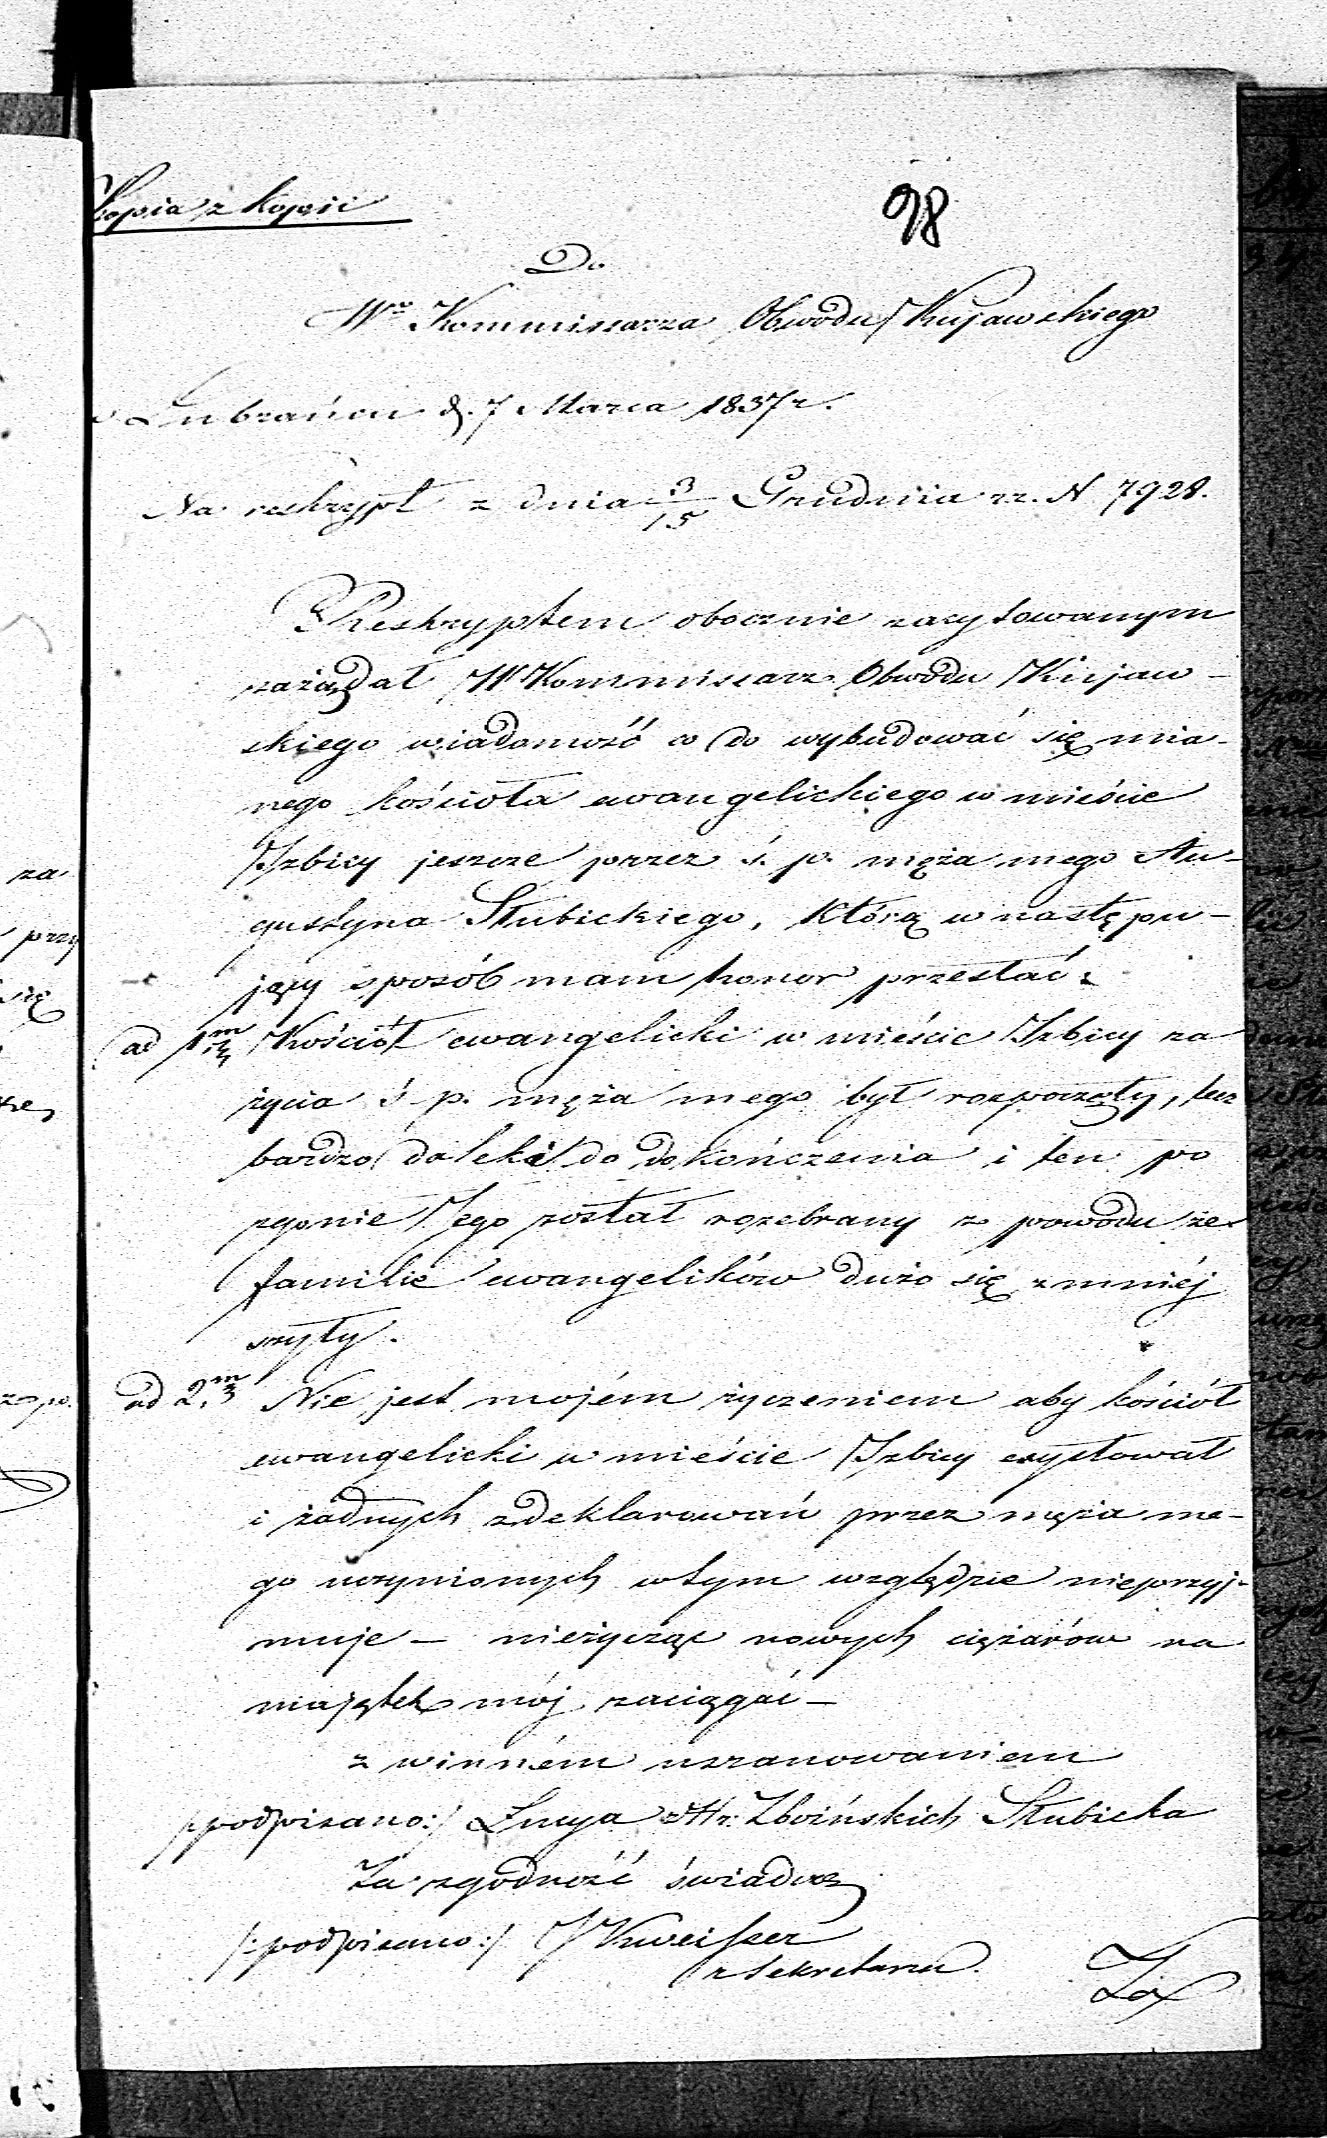 Kopia z kopii
98
Do
Wo Kommissarza Obwodu Kujawskiego
w Lubrańcu d. 7 Marca 1837 r.
Na reskrypt z dnia 3/15 Grudnia rz. N 7928.
Reskryptem obocznie zacytowanym
zażądał W Kommissarz Obwodu Kujaw-
skiego wiadomość co do wybudować się mia-
nego kościoła ewangelickiego w mieście
Izbicy jeszcze przez ś. p. męża mego Au-
gustyna Słubickiego, którą w następu-
jący sposób mam honor przesłać.
ad 1m Kościół ewangelicki w mieście Izbicy za
życia ś. p. męża mego był rozpoczęty, lecz
bardzo daleki do dokończenia i ten po
zgonie Jego został rozebrany z powodu że
familie ewangelików dużo się zmniej
szyły.
ad 2m Nie jest mojém życzeniem aby kościół
ewangelicki w mieście Izbicy exystował
i żadnych zdeklarowań przez męża me-
go uczynionych wtym względzie nieprzyj-
muje – nieżycząc nowych ciężarów na
majątek mój zaciągać –
z winném uszanowaniem
/podpisano:/ Łucya z Hr: Zboińskich Słubicka
Za zgodność świadczę
/:podpisano:/ J Kweisser
z Sekretarza
Za